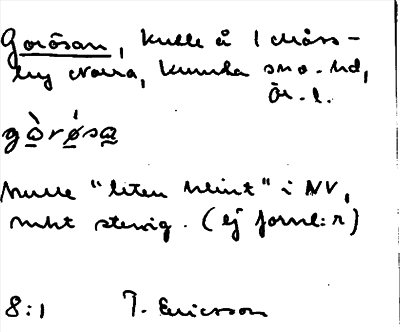 Gorösan, kulle å 1 Måss-
lry Norra, Kumla sn o. hd,
Ör. l.
gòrø̀sa
kulle "liten klint" i NV,
mkt stenig. (ej fornl:r)
8:1 T. Ericsson